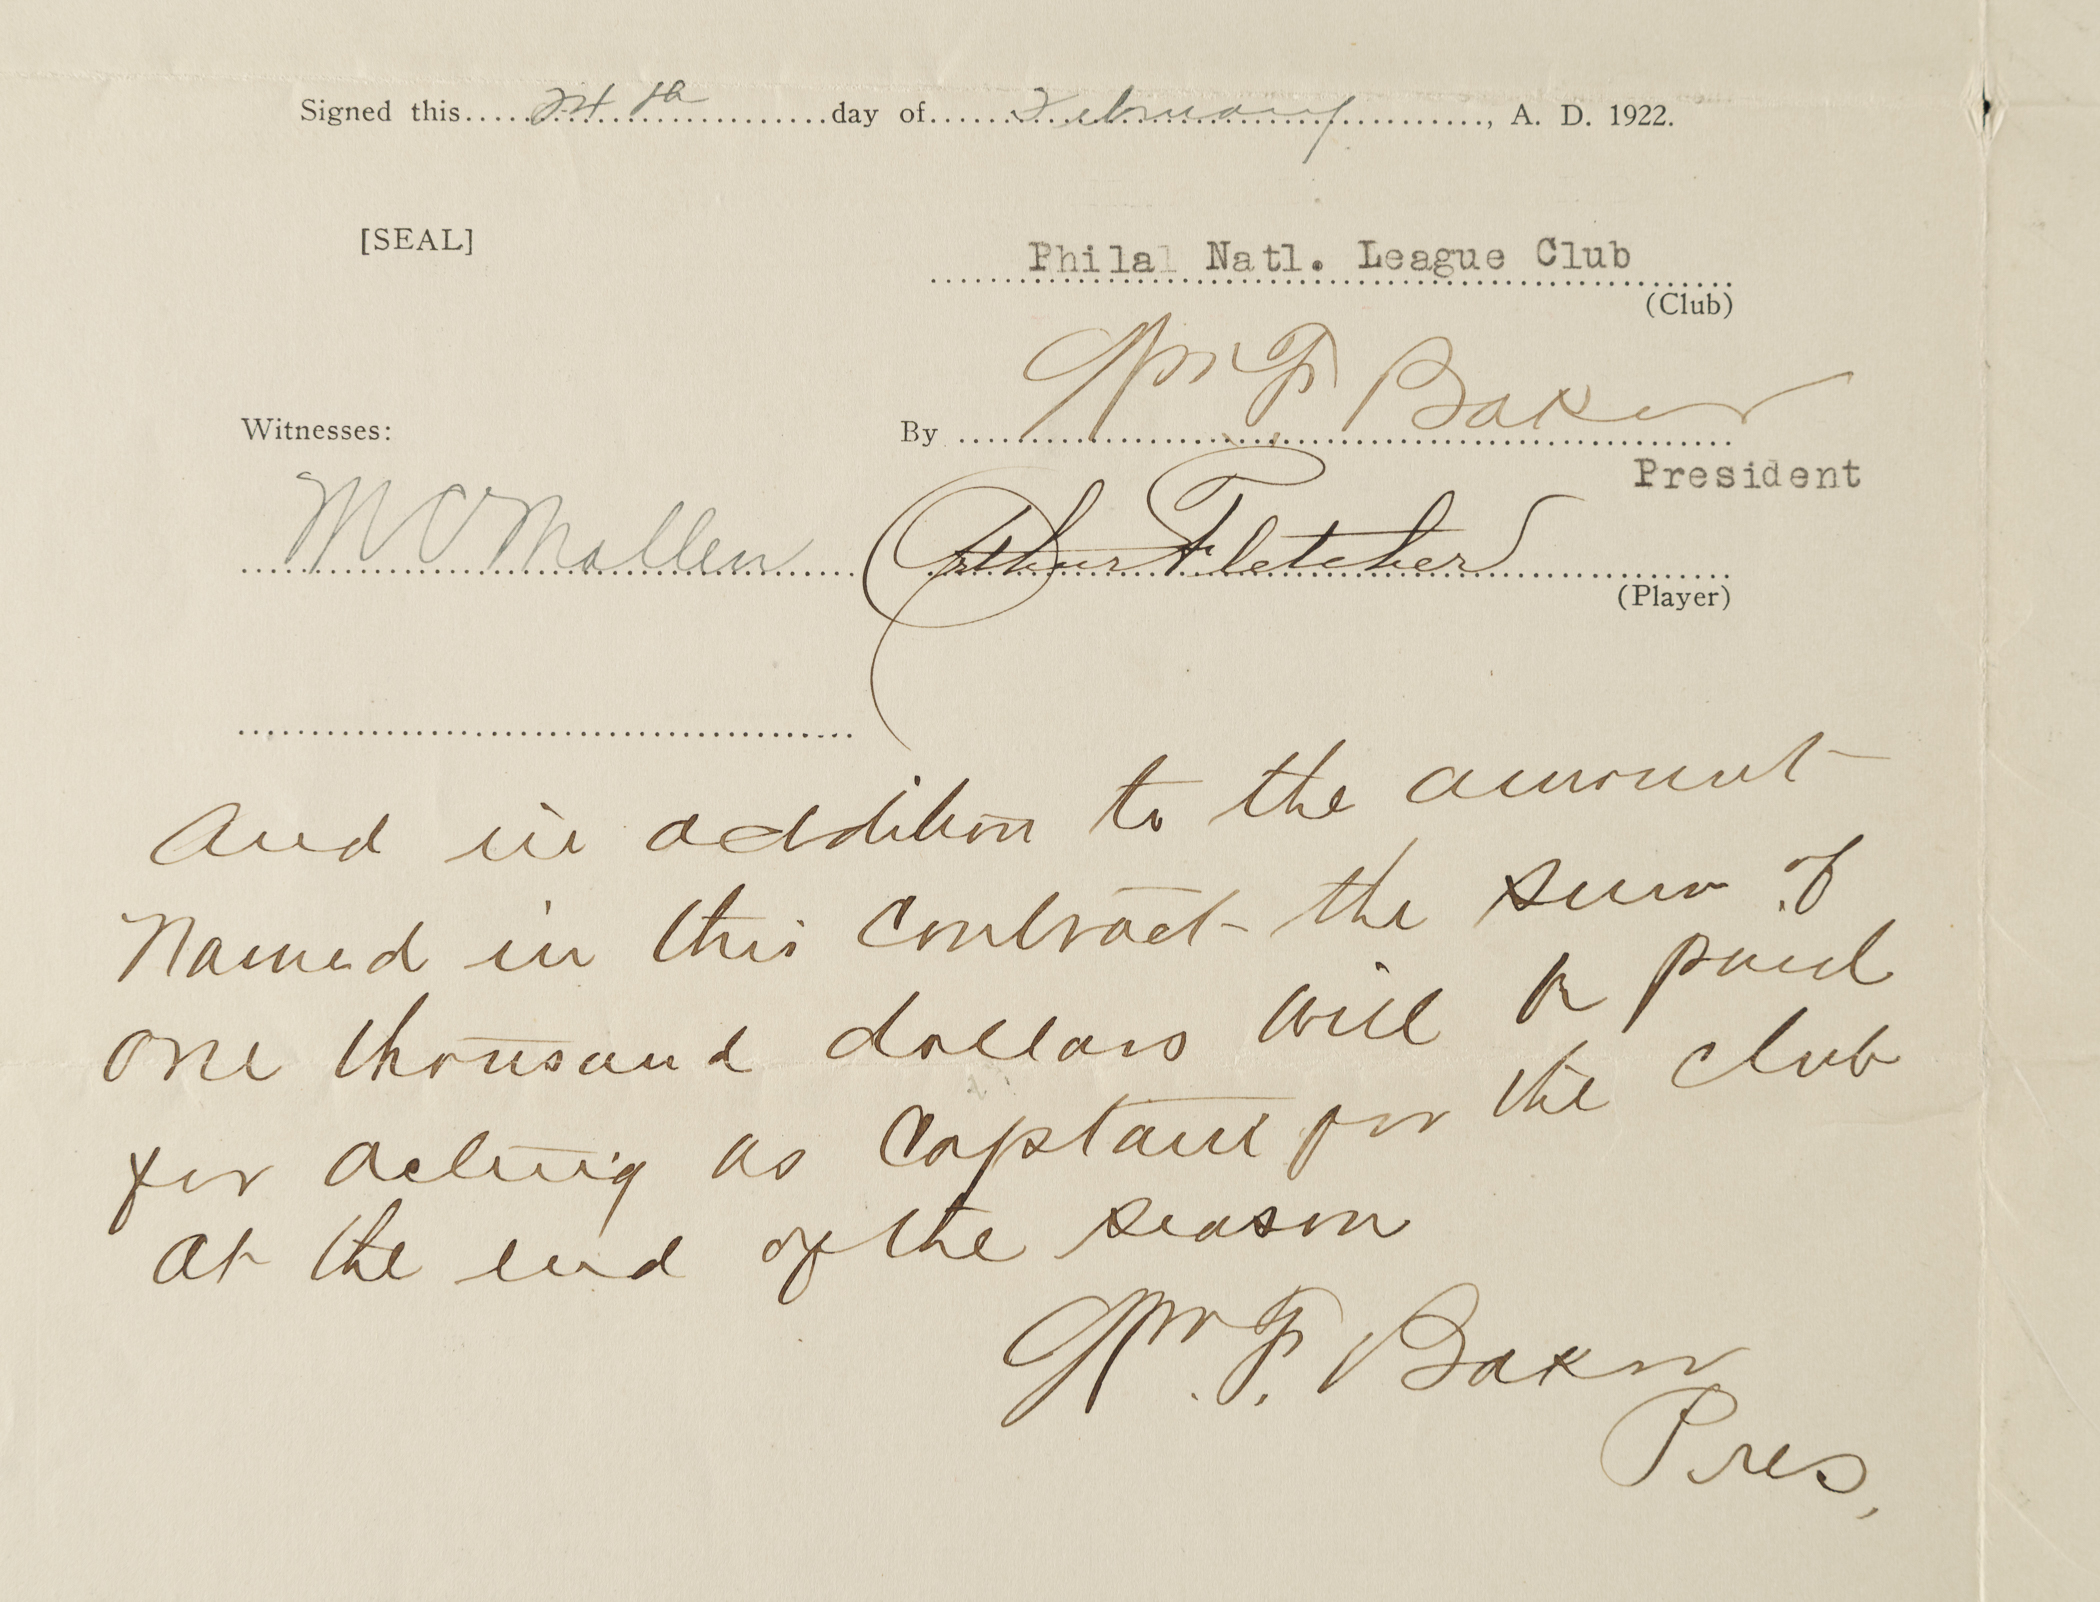 Signed this 24th day of February, A. D. 1922.
[SEAL]
Phila Natl. League Club
(Club)
Witnesses:
By Wm F. Baker
President
Arthur Fletcher
(Player)
And in addition to the amount
Named in this Contract the sum of
one thousand dollars will be paid
for acting as Captain for the club
at the end of the season
Wm. F. Baker
Pres.